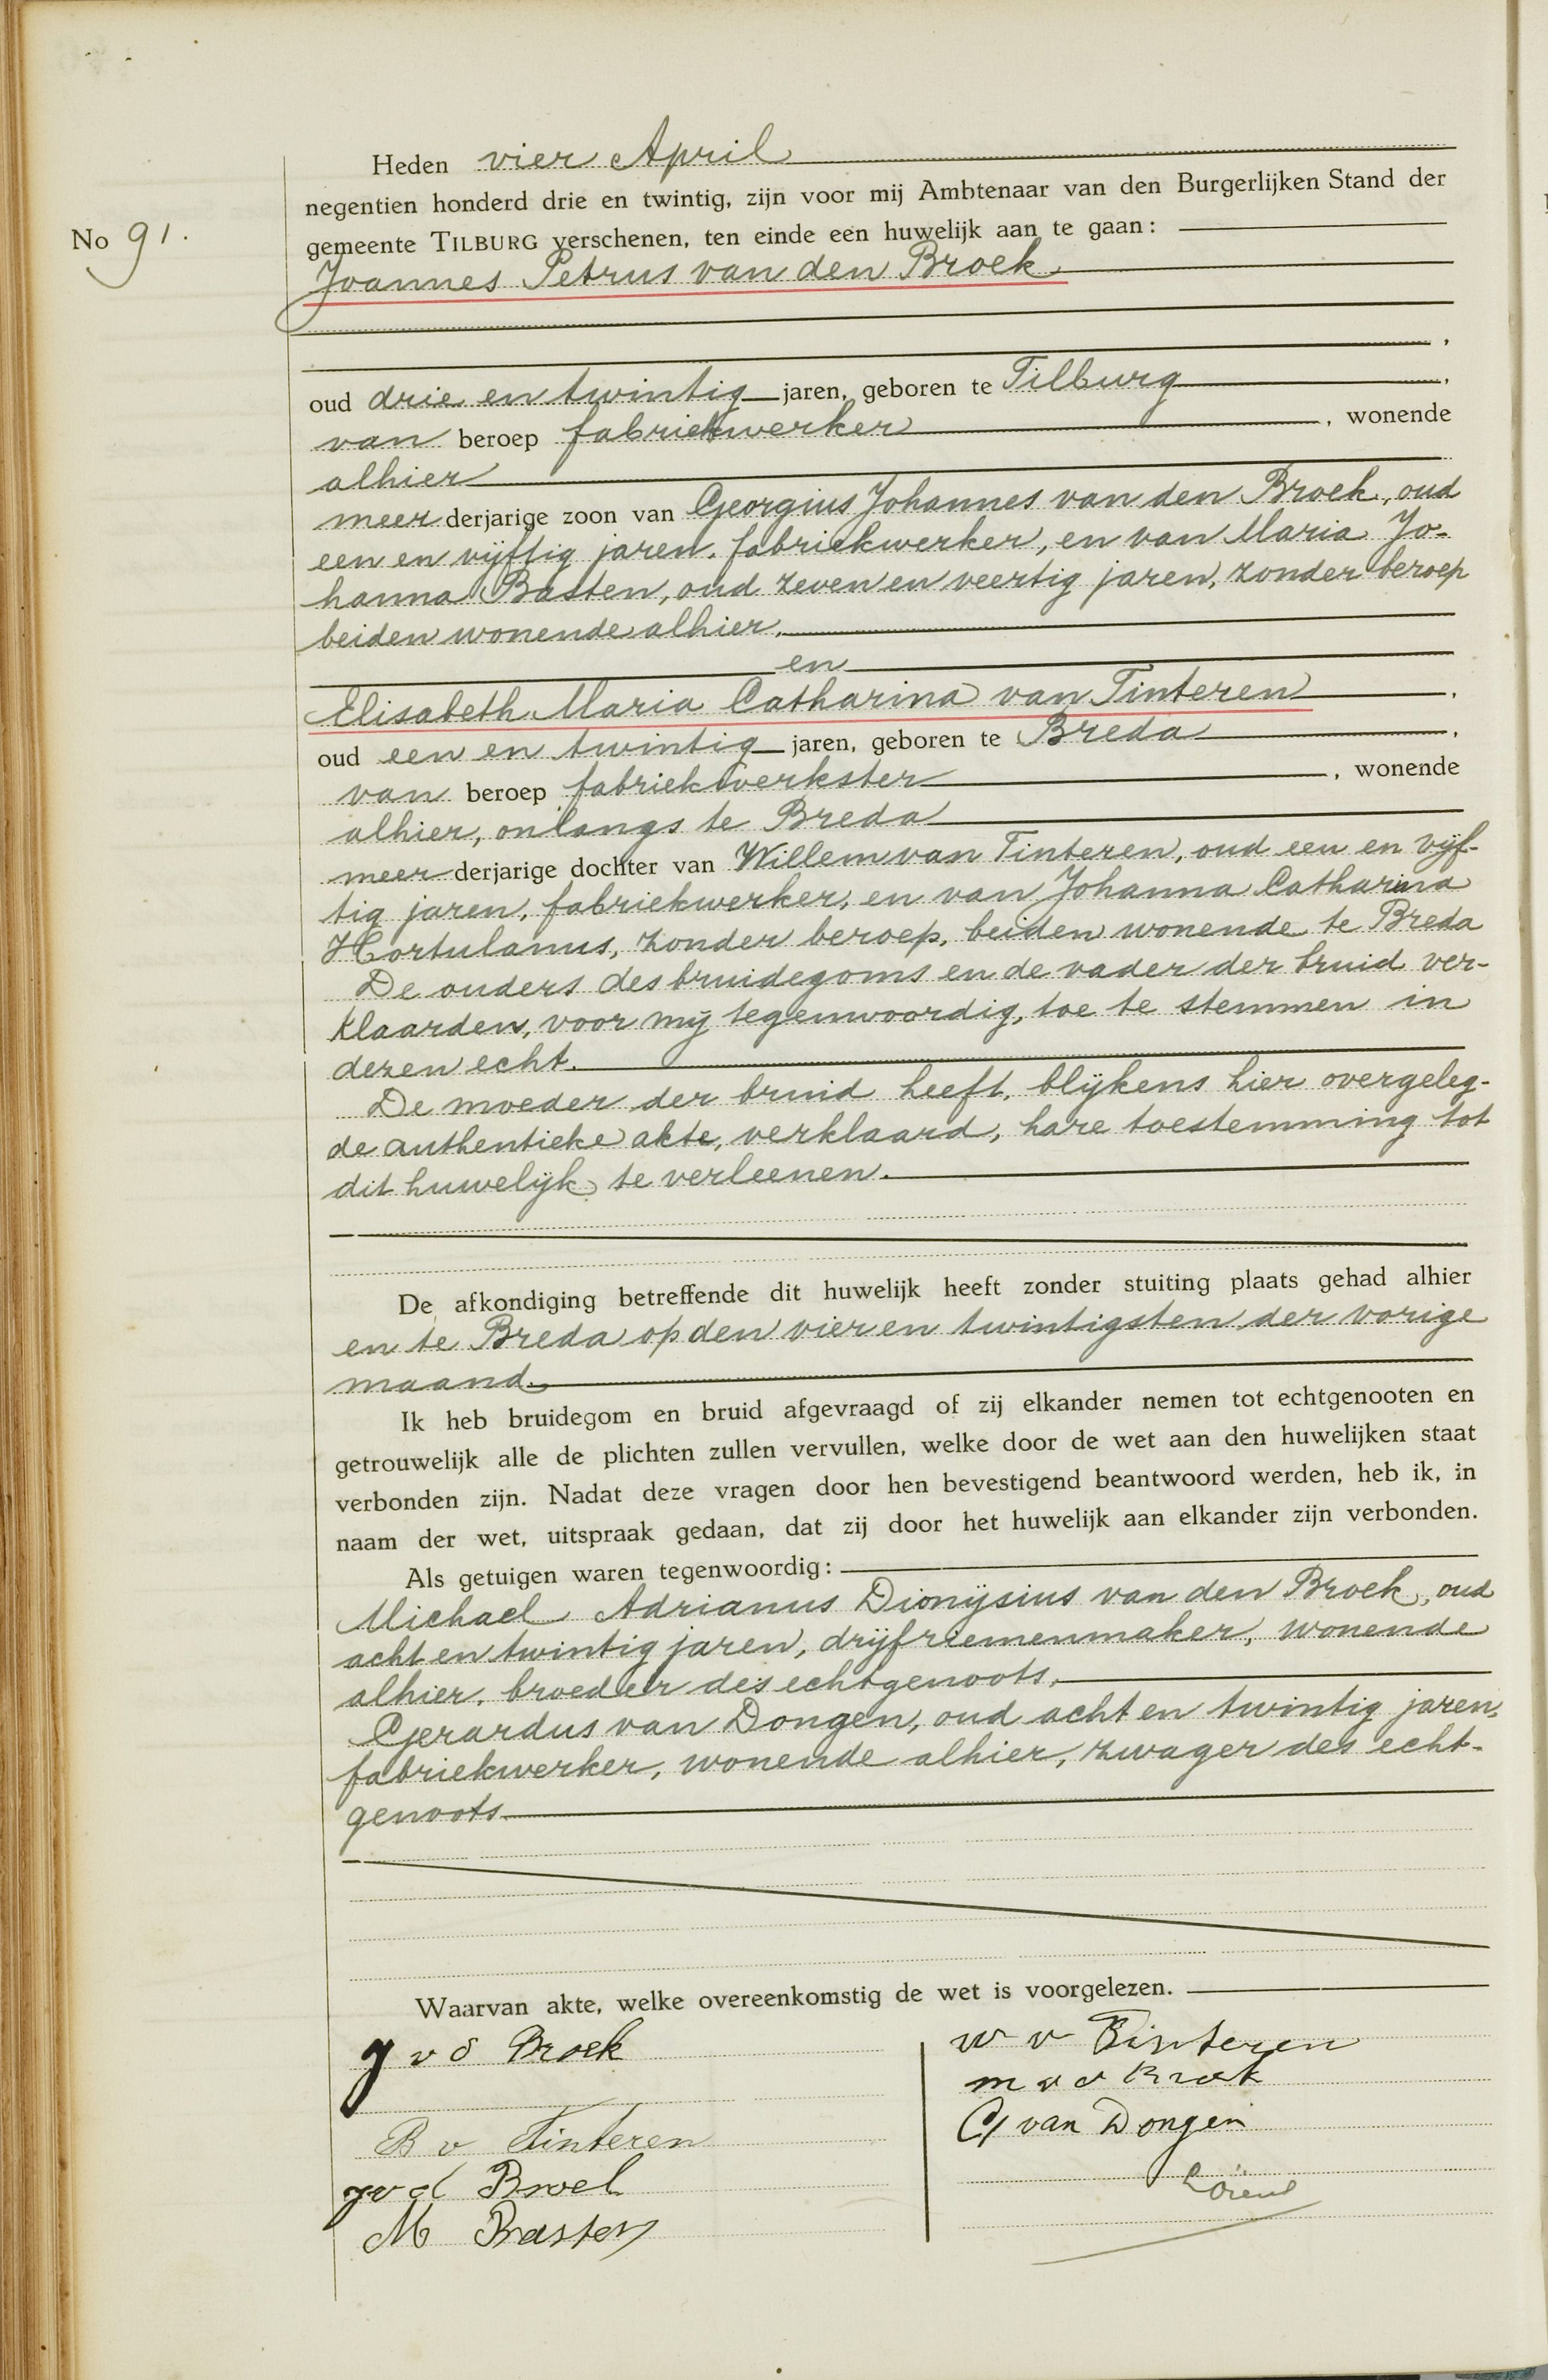 Heden vier April
negentien honderd drie en twintig, zijn voor mij Ambtenaar van den Burgerlijken Stand der
No 91.
gemeente TILBURG verschenen, ten einde een huwelijk aan te gaan:
Joannes Petrus van den Broek,
oud drie en twintig jaren, geboren te Tilburg,
van beroep fabriekwerker, wonende
alhier
meerderjarige zoon van Georgius Johannes van den Broek, oud
een en vijftig jaren, fabriekwerker, en van Maria Jo-
hanna Basten, oud zeven en veertig jaren, zonder beroep
beiden wonende alhier,
en
Elisabeth Maria Catharina van Tinteren,
oud een en twintig jaren, geboren te Breda,
van beroep fabriekwerkster, wonende
alhier, onlangs te Breda
meerderjarige dochter van Willem van Tinteren, oud een en vijf-
tig jaren, fabriekwerker, en van Johanna Catharina
Hortulanus, zonder beroep, beiden wonende te Breda
De ouders des bruidegoms en de vader der bruid ver-
klaarden, voor mij tegenwoordig, toe te stemmen in
dezen echt.
De moeder der bruid heeft, blijkens hier overgeleg-
de authentieke akte, verklaard, hare toestemming tot
dit huwelijk te verleenen.
De afkondiging betreffende dit huwelijk heeft zonder stuiting plaats gehad alhier
en te Breda op den vier en twintigsten der vorige
maand.
Ik heb bruidegom en bruid afgevraagd of zij elkander nemen tot echtgenooten en
getrouwelijk alle de plichten zullen vervullen, welke door de wet aan den huwelijken staat
verbonden zijn. Nadat deze vragen door hen bevestigend beantwoord werden, heb ik, in
naam der wet, uitspraak gedaan, dat zij door het huwelijk aan elkander zijn verbonden.
Als getuigen waren tegenwoordig:
Michael Adrianus Dionijsius van den Broek, oud
acht en twintig jaren, drijfriemenmaker, wonende
alhier, broeder des echtgenoots,
Gerardus van Dongen, oud acht en twintig jaren,
fabriekwerker, wonende alhier, zwager des echt-
genoots
Waarvan akte, welke overeenkomstig de wet is voorgelezen.
J v d Broek
B v Tinteren
J v d Broek
M Basten
W v Tinteren
M v d Broek
G van Dongen